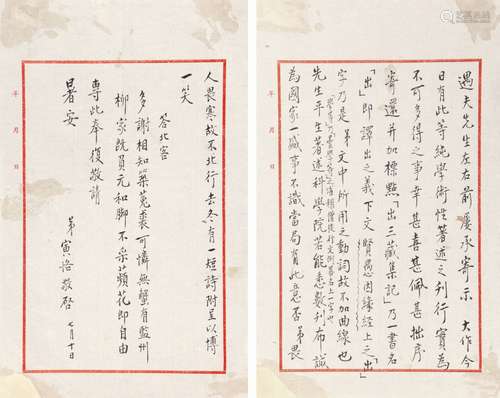 遇夫先生左右前屢承寄示 大作今
日有此等純學術性著述之刊行實為
不可多得之事幸甚喜甚佩甚拙序
寄還并加標點「出三藏集記」乃一書名
「出」即譯出之義下文賢愚因緣經上之「出」
字乃是弟文中所用之動詞故不加曲線也
先生平生著述科學院若能悉數刊布誠
為國家一盛事不識當局有此意否弟畏
年 月 日
人畏寒故不北行去冬有一短詩附呈以博
一笑
答北客
多謝相知築菟裘可憐無蟹有監州
柳家既負元和腳不采蘋花即自由
專此奉復敬請
暑安
弟寅恪敬啓 七月十日
年 月 日